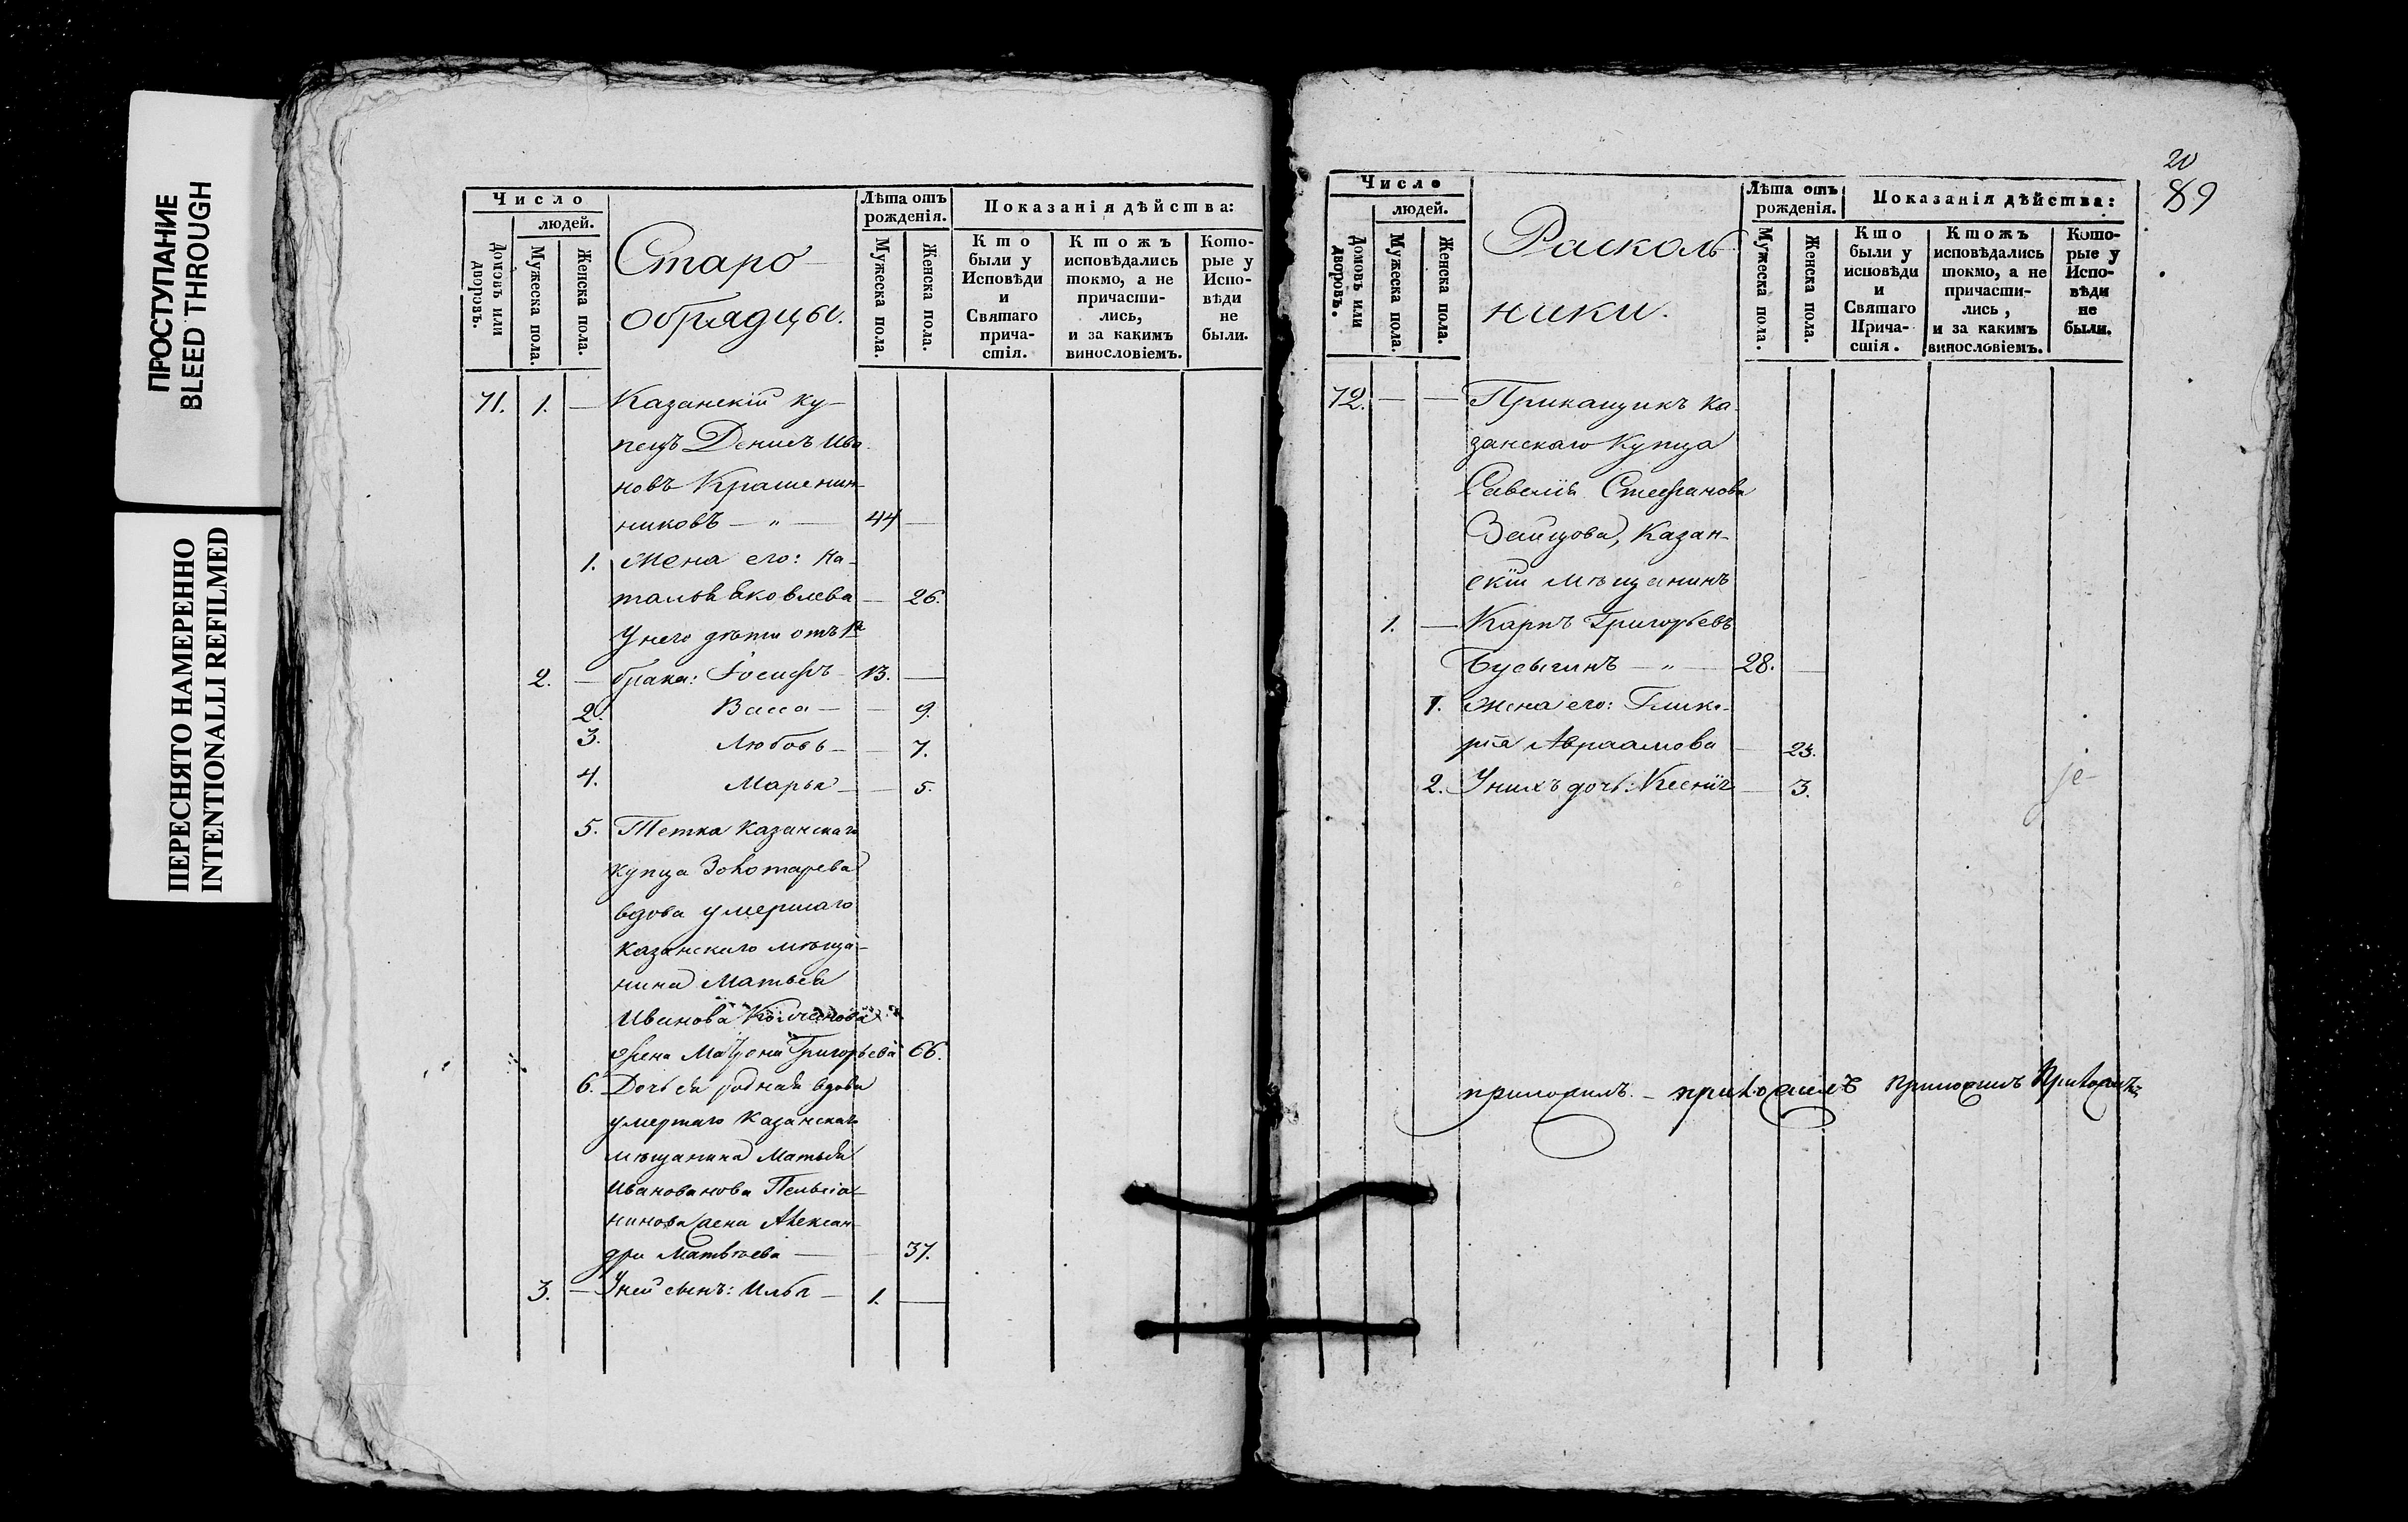 ПРОСТУПАНИЕ
BLEED THROUGH
ПЕРЕСНЯТО НАМЕРЕННО
INTENTIONALLI REFILMED
Число
людей.
Домовъ или дворовъ.
Мужеска пола.
Женска пола.
Старо-
обрядцы.
Лѣта отъ рожденія.
Мужеска пола.
Женска пола.
Показанія дѣйства:
Кто были у Исповѣди и Святаго причастія.
Ктожъ исповѣдались токмо, а не причастились, и за какимъ винословіемъ.
Которые у Исповѣди не были.
71. 1. — Казанскій ку-
пецъ Денисъ Ива-
новъ Крашенин-
никовъ — „ — 44 —
1. Жена его: На-
талья Яковлева — 26.
У него дѣти отъ 1го
2. — брака: Іосифъ 13. —
2. Васса — — 9.
3. Любовь — — 7.
4. Марья — — 5.
5. Тетка Казанскаго
купца Золотарева
вдова умершаго
Казанскаго мѣща-
нина Матвея
Иванова
жена Матрона Григорьева 66.
6. Дочь ея родная вдова
умершаго Казанскаго
мѣщанина Матвея
Иванованова
жена Алексан-
дра Матвѣева — — 37.
3. — У ней сынъ: Илья — 1. —
20
89
Число
людей.
Домовъ или дворовъ.
Мужеска пола.
Женска пола.
Расколь-
ники.
Лѣта отъ рожденія.
Мужеска пола.
Женска пола.
Показанія дѣйства:
Кто были у исповѣди и Святаго Причастія.
Ктожъ исповѣдались токмо, а не причастились, и за какимъ винословіемъ.
Которые у Исповѣди не были.
72. — — Прикащикъ Ка-
занскаго Купца
Савелія Стефанова
Зайцова, Казан-
скій мѣщанинъ
1. — Карпъ Григорьевъ
Бусыгинъ — „ — 28. —
1. Жена его: Глике-
рія Авраамова — 23.
2. У нихъ дочь: Ксенія — 3.